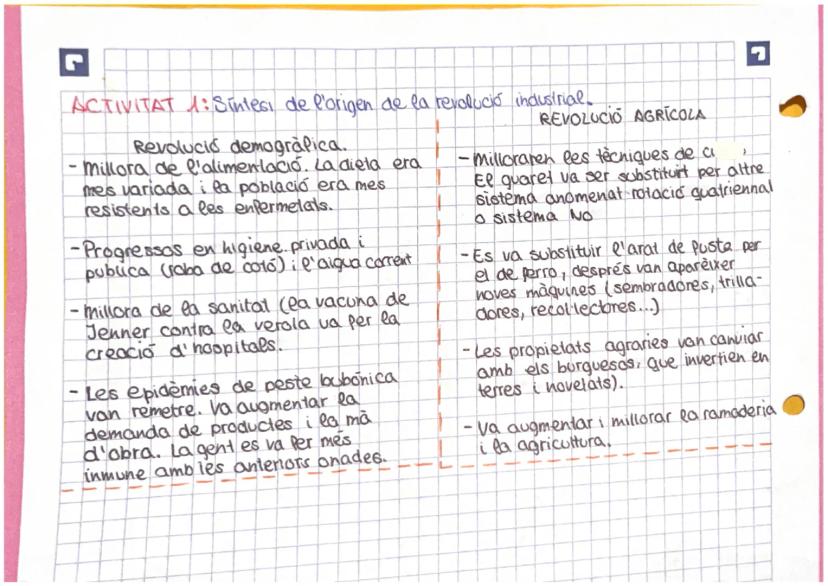 ACTIVITAT 1: Síntesi de l'origen de la revolució industrial.
Revolució demogràfica.
- Millora de l'alimentació. La dieta era
mes variada i la població era mes
resistents a les enfermetats.
- Progressos en higiene privada i
publica (roba de cotó) i l'aigua corrent
- millora de la sanitat (la vacuna de
Jenner contra la verola va fer la
creació d'hospitals.
- Les epidèmies de peste bubónica
van remetre. Va augmentar la
demanda de productes i la mà
d'obra. La gent es va fer més
inmune amb les anteriors onades.
REVOLUCIÓ AGRÍCOLA
- Milloraren les tècniques de
El guaret va ser substituït per altre
sistema anomenat rotació quatriennal
o sistema No
- Es va substituir l'arat de fusta per
el de ferro, després van aparèixer
noves màquines (sembradores, trilla-
dores, recol·lectores...)
- Les propietats agraries van canviar
amb els burguesos, que invertien en
terres i novetats).
- Va augmentar i millorar la ramaderia
i la agricultura.